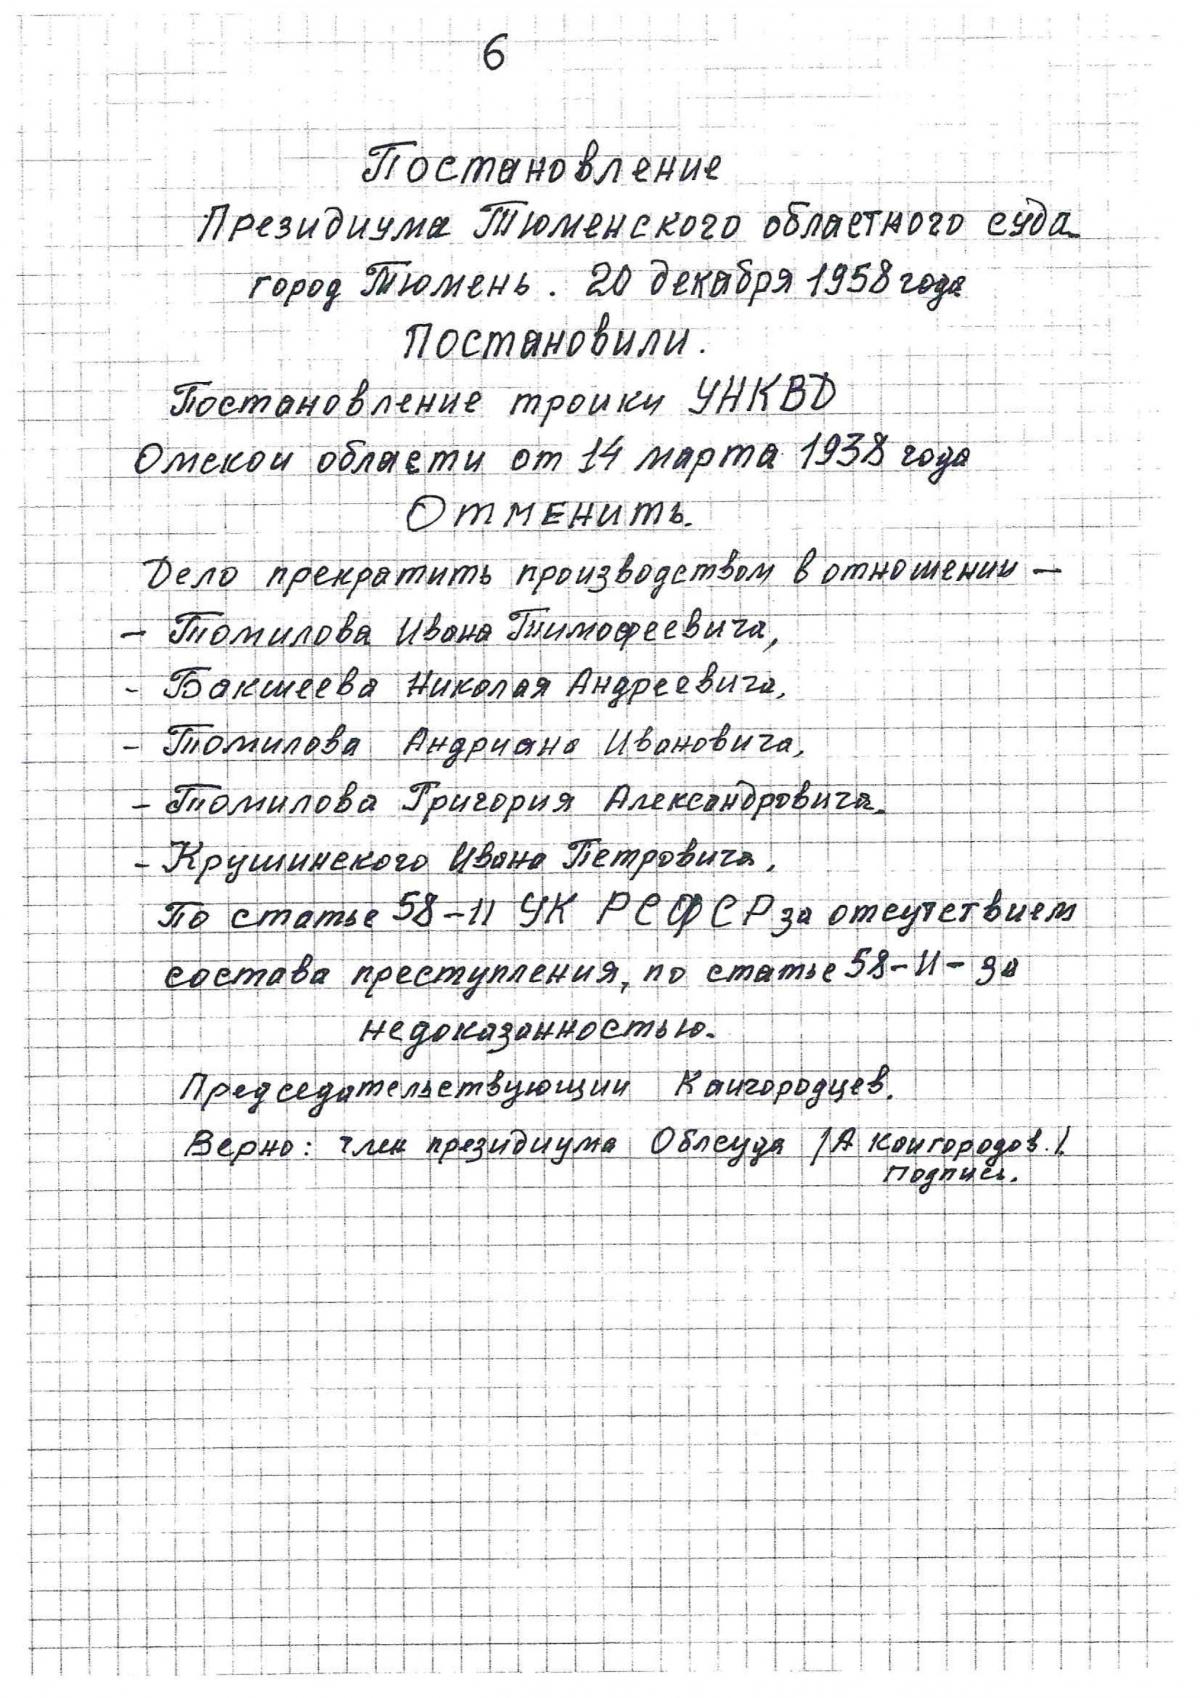 6
Постановление
Президиума Тюменского областного суда
город Тюмень. 20 декабря 1958 года
Постановили.
Постановление троики УНКВД
Омскои области от 14 марта 1938 года
Отменить.
Дело прекратить производством в отношении –
– Томилова Ивана Тимофеевича,
– Бакшеева Николая Андреевича,
– Томилова Андриана Ивановича,
– Томилова Григория Александровича.
– Крушинского Ивана Петровича,
По статье 58–11 УК РСФСР за отсутствием
состава преступления, по статье 58–11 – за
недоказанностью.
Председательствующии Каигородцев.
Верно: член президиума Облсуда /А Каигородов./.
Подпись.